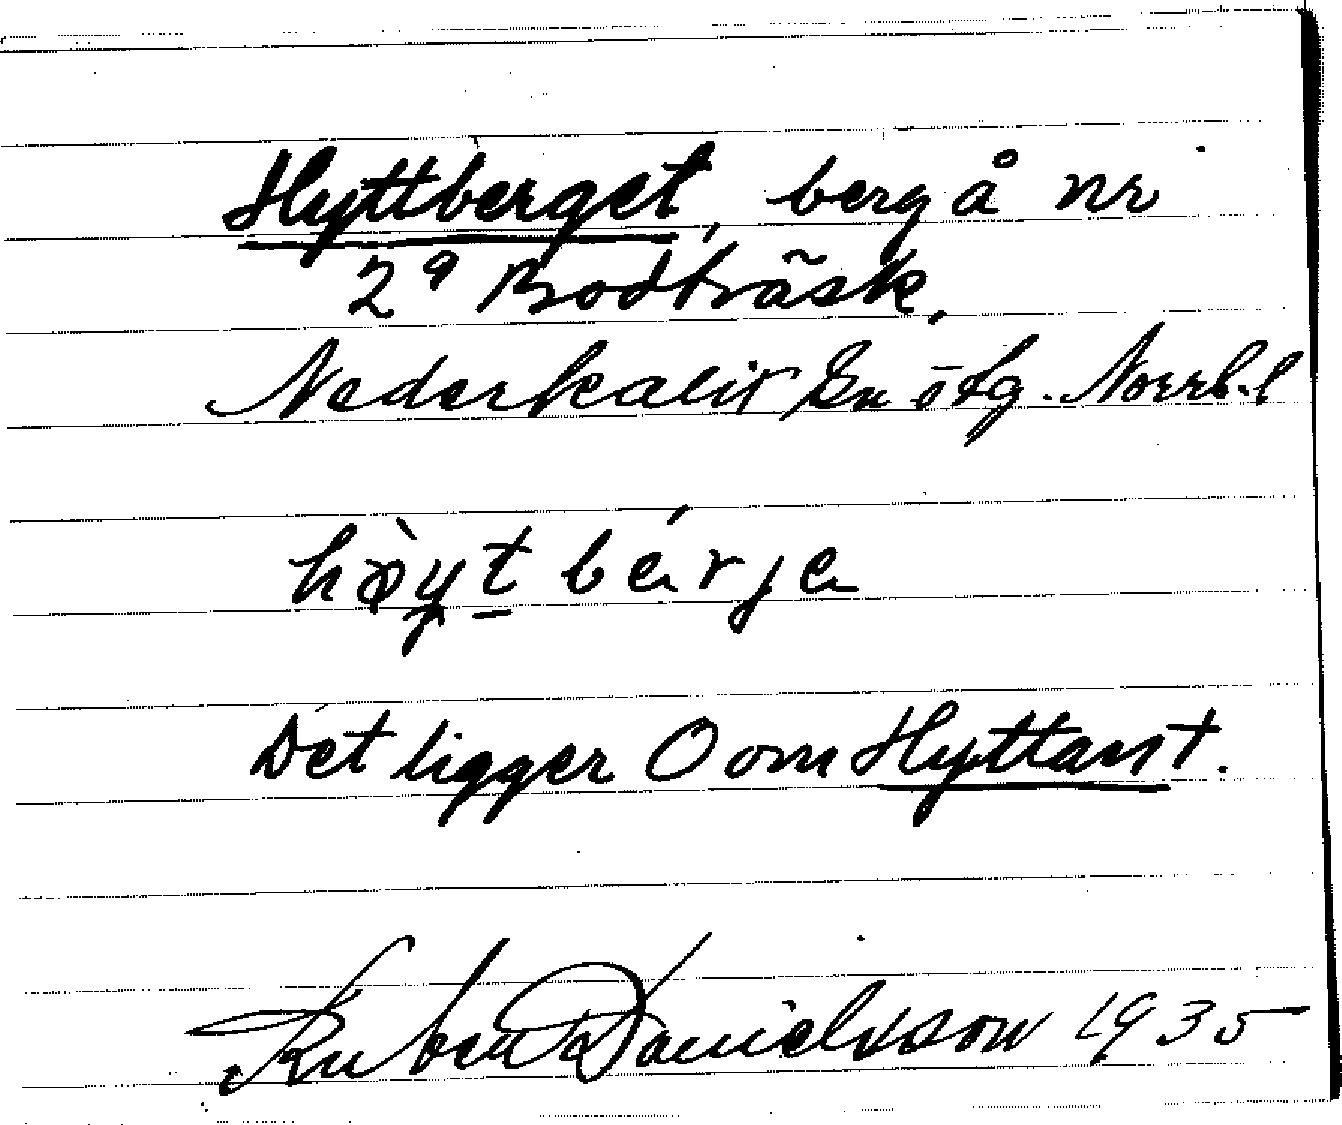 Hyttberget, berg å nr
2ᵃ Bodträsk,
Nederkalix sn ötg. Norrb.l
hø̀yt bérje
Det ligger O om Hyttarst.
Ruben Danielsson 1935